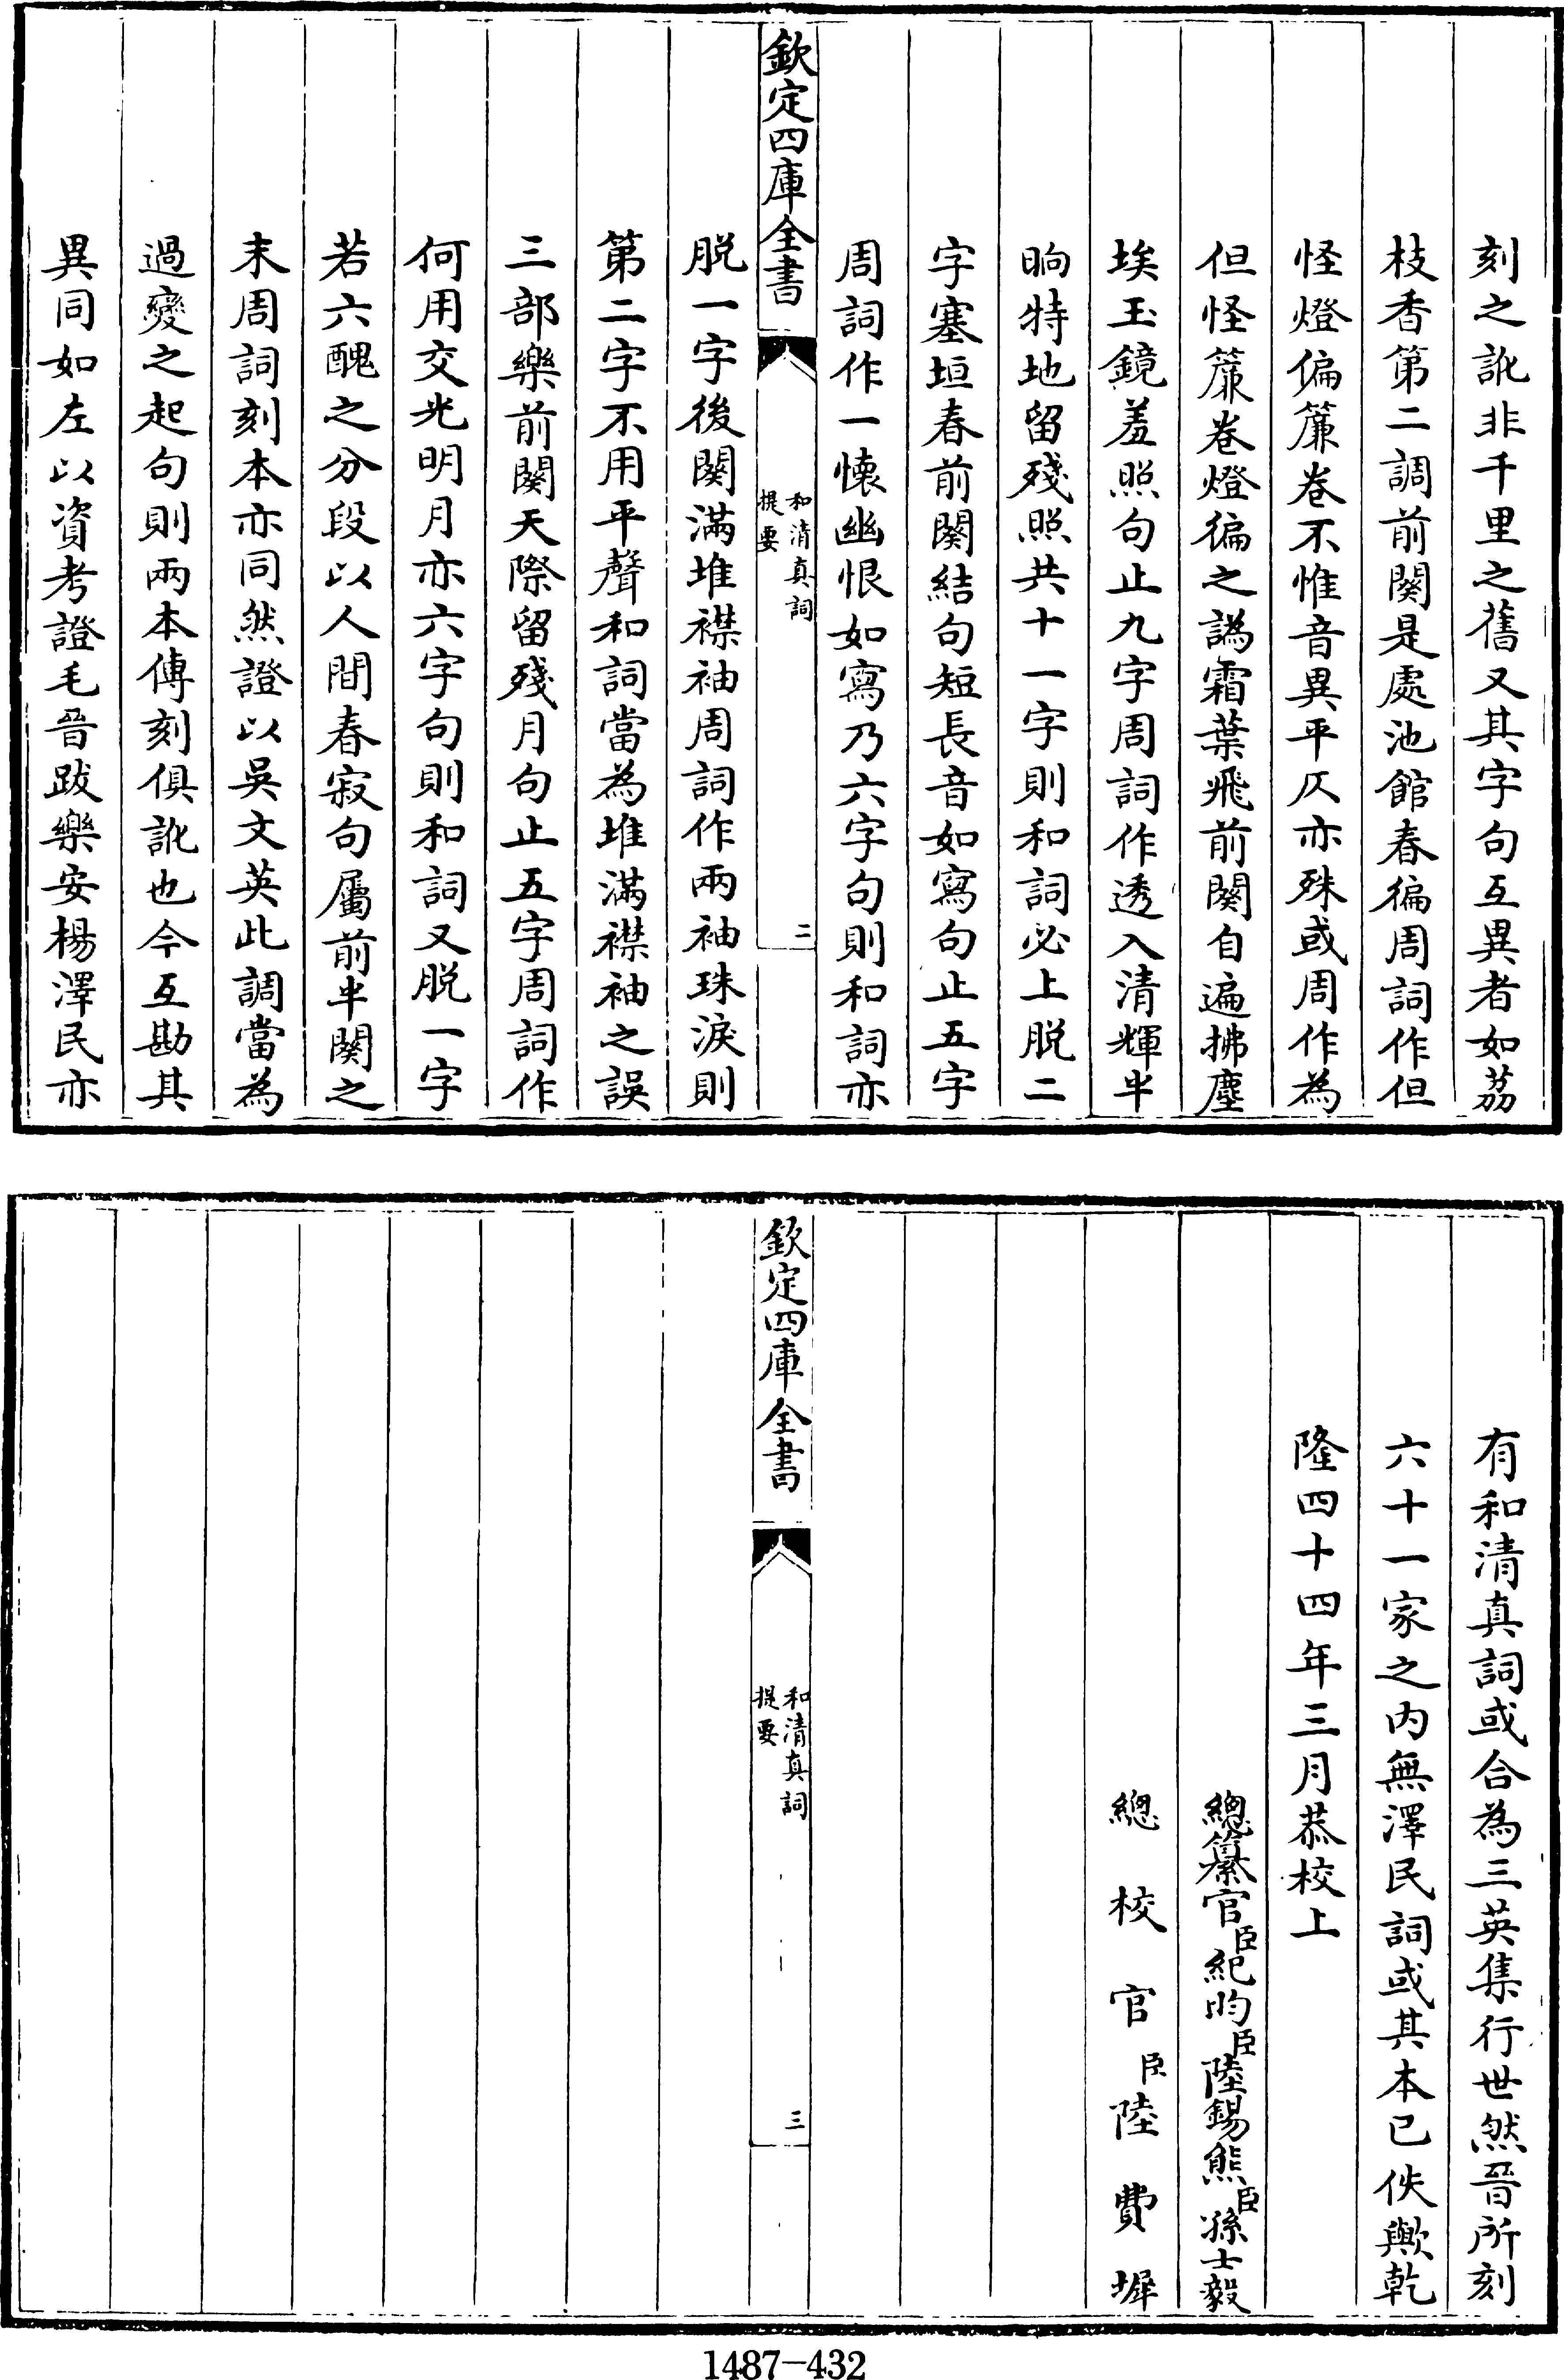 刻之訛非千里之舊又其字句互異者如荔
枝香第二調前闋是處池館春徧周詞作但
怪燈偏簾卷不惟音異平仄亦殊或周作為
但怪簾卷燈徧之譌霜葉飛前闋自遍拂塵
埃玉鏡羞照句止九字周詞作透入清輝半
晌特地留殘照共十一字則和詞必上脱二
字塞垣春前闋結句短長音如寫句止五字
周詞作一懷幽恨如寫乃六字句則和詞亦
欽定四庫全書
和清真詞
提要
二
脱一字後闋滿堆襟袖周詞作兩袖珠淚則
第二字不用平聲和詞當為堆滿襟袖之誤
三部樂前闋天際留殘月句止五字周詞作
何用交光明月亦六字句則和詞又脱一字
若六醜之分段以人間春寂句屬前半闋之
末周詞刻本亦同然證以吳文英此調當為
過變之起句則兩本傳刻俱訛也今互勘其
異同如左以資考證毛晉跋樂安楊澤民亦
有和清真詞或合為三英集行世然晉所刻
六十一家之内無澤民詞或其本已佚歟乾
隆四十四年三月恭校上
總纂官臣紀昀臣陸錫熊臣孫士毅
總校官臣陸費墀
欽定四庫全書
和清真詞
提要
三
1487-432